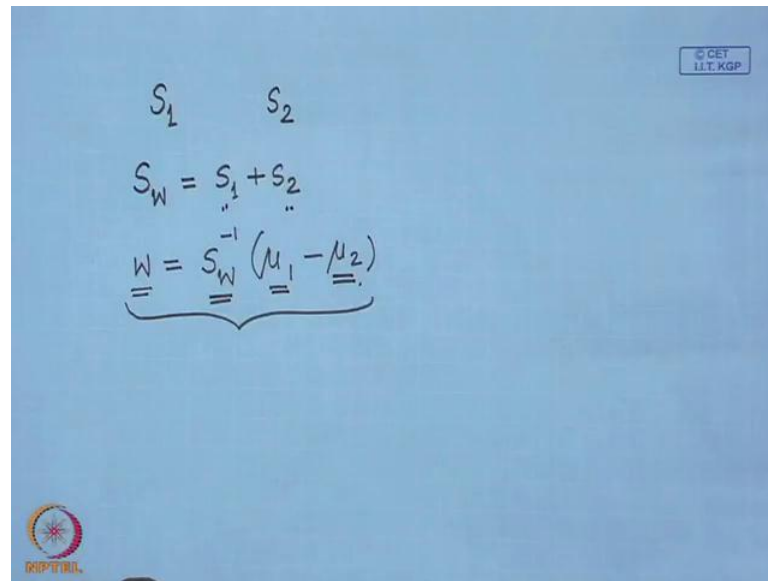 © CET
I.I.T. KGP
S₁ S₂
S_W = S₁ + S₂
W = S_W⁻¹ (μ₁ − μ₂)
NPTEL